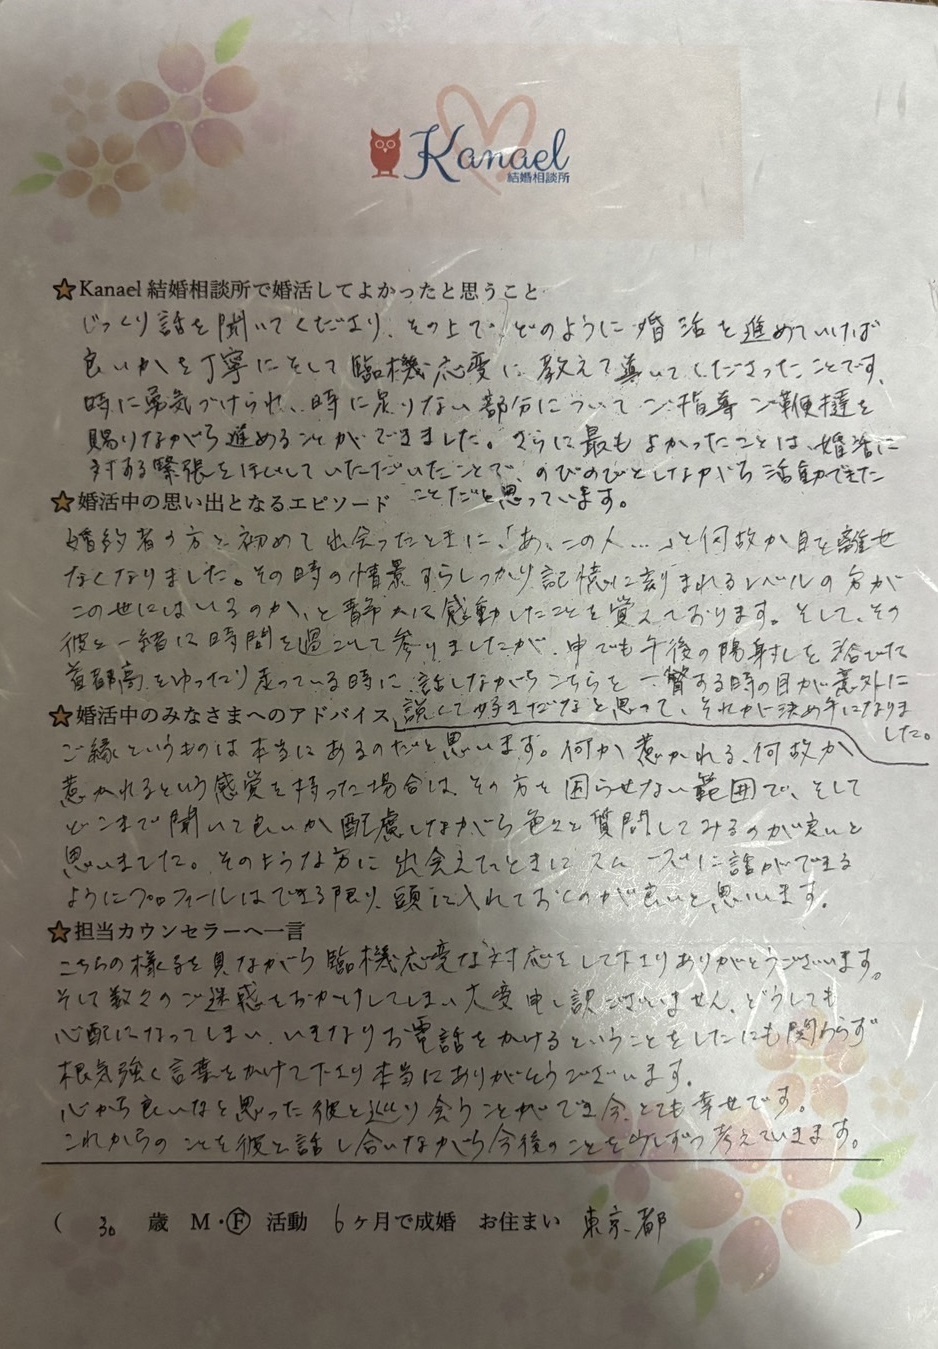 Kanael
結婚相談所
Kanael 結婚相談所で婚活してよかったと思うこと
じっくり話を聞いてくださり、その上で、どのように婚活を進めていけば
良いかを丁寧にそして臨機応変に教えて導いてくださったことです。
時に勇気づけられ、時に足りない部分についてご指導ご鞭撻を
賜りながら進めることができました。さらに最もよかったことは、婚活に
対する緊張をほぐしていただいたことで、のびのびとしながら活動できた
ことだと思っています。
婚活中の思い出となるエピソード
婚約者の方と初めて出会ったときに、「あ、この人…」と何故か目を離せ
なくなりました。その時の情景すらしっかり記憶に刻まれるレベルの方が
この世にはいるのか、と静かに感動したことを覚えております。そして、その
彼と一緒に時間を過ごして参りましたが、中でも午後の陽射しを浴びた
首都高をゆったり走っている時に、話しながらこちらを一瞥する時の目が意外に
鋭くて好きだなと思って、それが決め手になりま
した。
婚活中のみなさまへのアドバイス
ご縁というものは本当にあるのだと思います。何か惹かれる、何故か
惹かれるという感覚を持った場合は、その方を困らせない範囲で、そして
どこまで聞いて良いか配慮しながら色々と質問してみるのが良いと
思いました。そのような方に出会えたときにスムーズに話ができる
ようにプロフィールはできる限り、頭に入れておくのが良いと思います。
担当カウンセラーへ一言
こちらの様子を見ながら臨機応変な対応をして下さりありがとうございます。
そして数々のご迷惑をおかけしてしまい大変申し訳ございません。どうしても
心配になってしまい、いきなりお電話をかけるということをしたにも関わらず
根気強く言葉をかけて下さり本当にありがとうございます。
心から良いなと思った彼と巡り会うことができ今、とても幸せです。
これからのことを彼と話し合いながら今後のことを少しずつ考えていきます。
( 30 歳 M・F 活動 6ヶ月で成婚 お住まい 東京都 )